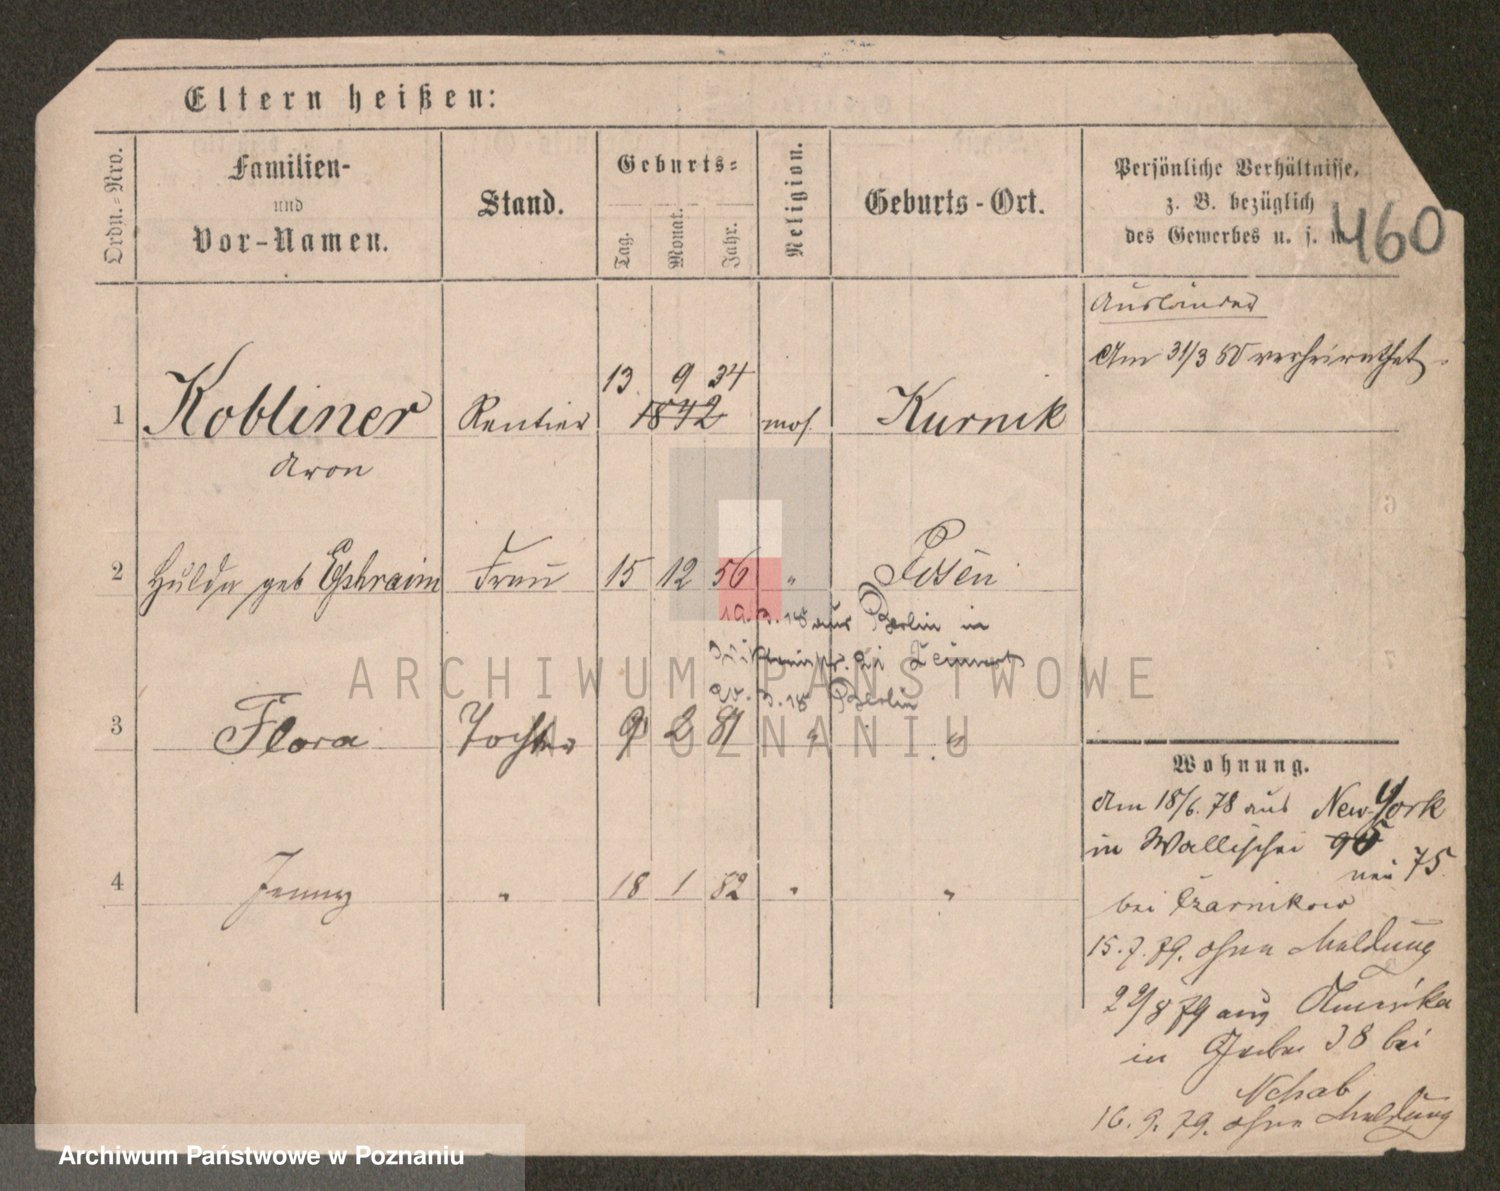 Eltern heißen:
Ordn.-Nro.
Familien-
und
Vor-Namen.
Stand.
Geburts-
Tag.
Monat.
Jahr.
Religion.
Geburts-Ort.
Persönliche Verhältnisse,
z. B. bezüglich
des Gewerbes u. s. w.
460
Ausländer
Am 31/3 80 verheirathet.
13 9 34
1 Kobliner Rentier 1842 mos. Kurnik
Aron
2 Hulda geb Ephraim Frau 15 12 56 " Posen
19.3.18 aus Berlin in
bei
3.18 Berlin
3 Flora Tochter 9 2 81 " "
Wohnung.
Am 18/6.78 aus New York
in Wallischei 95
neu 75.
4 Jenny " 18 1 82 " "
bei Czarnikow
15.7.79. ohne Meldung
29/8 79 aus Amerika
in 38 bei
Nehab
16.9.79. ohne Meldung
ARCHIWUM PAŃSTWOWE
W POZNANIU
Archiwum Państwowe w Poznaniu